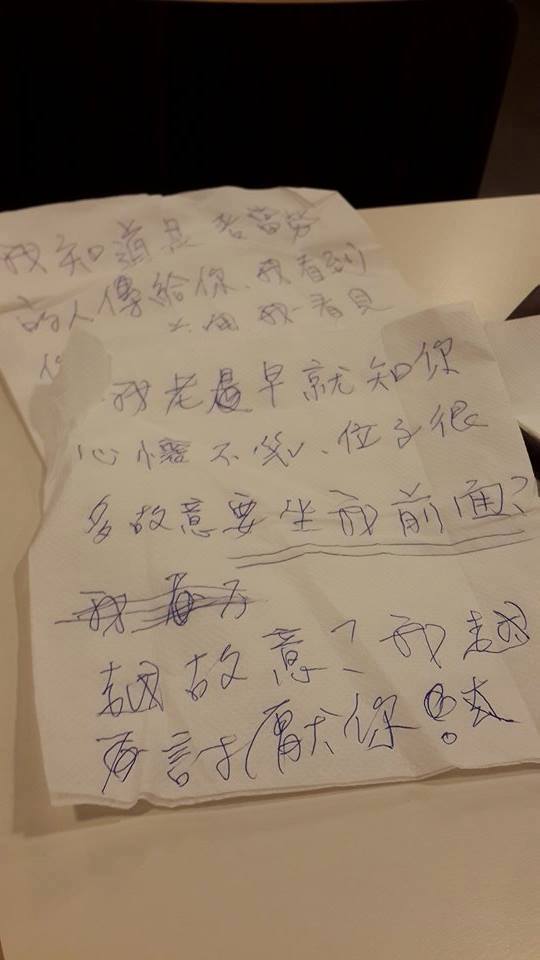 我知道是老當勞
的人傳給你、我看到
我一看見
我老早就知你
心懷不   、位子很
多故意要坐我前面？
越故意？我越
討厭你！去